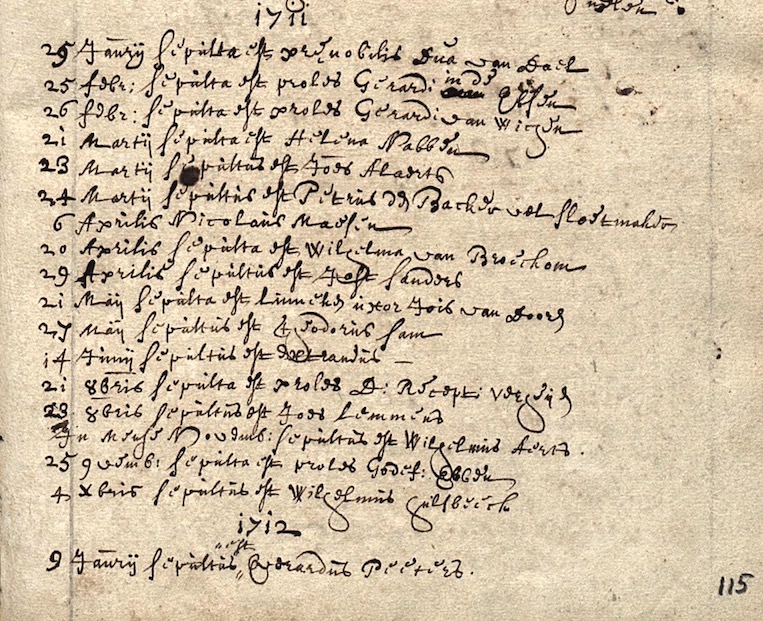 1711
25 Janrij sepulta est prenobilis Dna van Dael
25 febr: sepulta est proles Gerardi in de Elsen
26 febr: sepulta est proles Gerardi van Wiesen
21 Martij sepulta est Helena Nabben
23 Martij sepultus est Joes Alaerts
24 Martij sepultus est Petrus de Backer vel slootmaker
6 Aprilis Nicolaus Maesen
20 Aprilis sepulta est Wilhelma van Broeckom
29 Aprilis sepultus est Jost sanders
21 Maij sepulta est Linneke uxor Jois van Doore
27 Maij sepultus est Theodorus ham
14 Junij sepultus est
21 8bris sepulta est proles D: Recept: verheije
23 8bris sepultus est Joes Lemmens
In Mense Novemb: sepultus est Wilhelmus Aerts.
25 9vemb: sepulta est proles Godef: Ebben
4 Xbris sepultus est Wilhelmus hulsbeeck
1712
est
9 Janrij sepultus Gerardus Peeters.
115